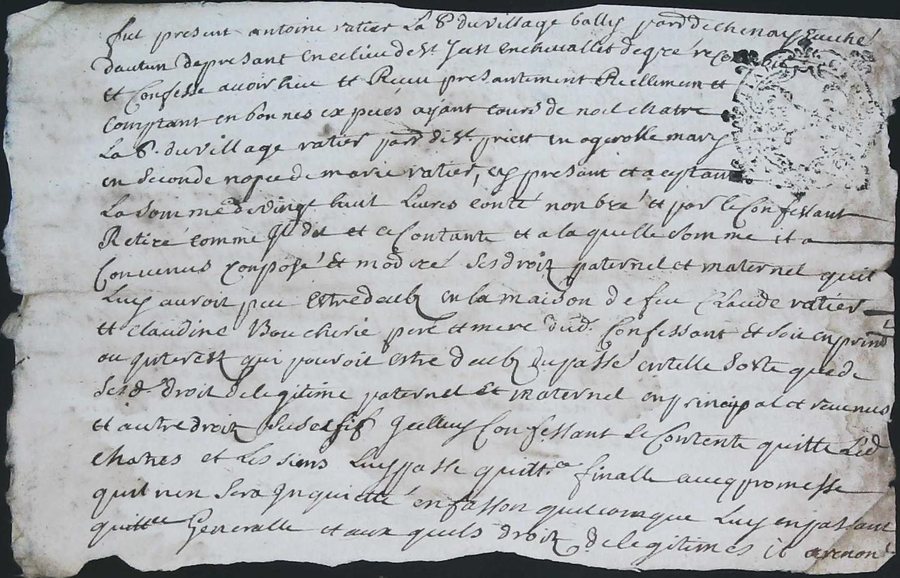 fut present antoine ratier La.r du village bally parr de chenay Euché
dautun de present en ce lieu de St Jean en chevallet de gré reco
et Confesse avoir heu et Receu presantement Reellement et
Comptant en bonnes expeces ayant cours de noel chatre
La.r du village ratier parr de St priest en
en seconde nopce de marie ratier, cy present et aceptant
La somme de vingt huit Livres conté nonbré et par le Confessant
Retiré comme Il dit et ce Contante et a la quelle somme il a
Convenus composé et modéré ses droit paternel et maternel quil
Luy auroit peu Estre deub en la maison de feu Claude ratier
et claudine Boucherie pere et mere dud. Confessant et soit en prin
ou Interest qui pouroit estre deub du passé en telle sorte que de
sesd. droit de legitime paternel et maternel en principal et revenus
et autre droit Icelluy Confessant se Contente quitte Led
chatres et Les siens Luy passe quittce finalle avecq promesse
quil nen sera Inquietté en fasson quelconque Luy en passant
quittce Generalle et aux quels droit de legitimes il a renon